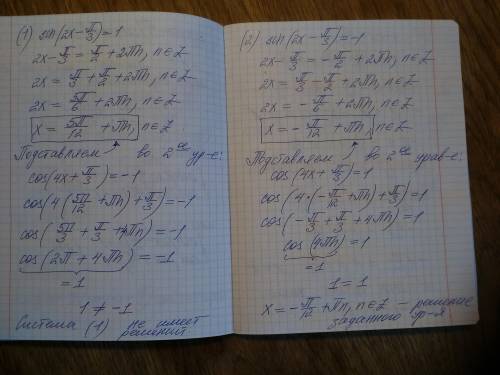 (1) sin(2x - π/3) = 1
2x - π/3 = π/2 + 2πn, n∈Z
2x = π/3 + π/2 + 2πn, n∈Z
2x = 5π/6 + 2πn, n∈Z
x = 5π/12 + πn, n∈Z
Подставляем во 2ое ур-е:
cos(4x + π/3) = -1
cos(4(5π/12 + πn) + π/3) = -1
cos(5π/3 + π/3 + 4πn) = -1
cos(2π + 4πn) = -1
= 1
1 ≠ -1
Система (1) не имеет
решений
(2) sin(2x - π/3) = -1
2x - π/3 = -π/2 + 2πn, n∈Z
2x = π/3 - π/2 + 2πn, n∈Z
2x = -π/6 + 2πn, n∈Z
x = -π/12 + πn, n∈Z
Подставляем во 2ое урав-е:
cos(4x + π/3) = 1
cos(4·(-π/12 + πn) + π/3) = 1
cos(-π/3 + π/3 + 4πn) = 1
cos(4πn) = 1
= 1
1 = 1
x = -π/12 + πn, n∈Z - решение
заданного ур-я